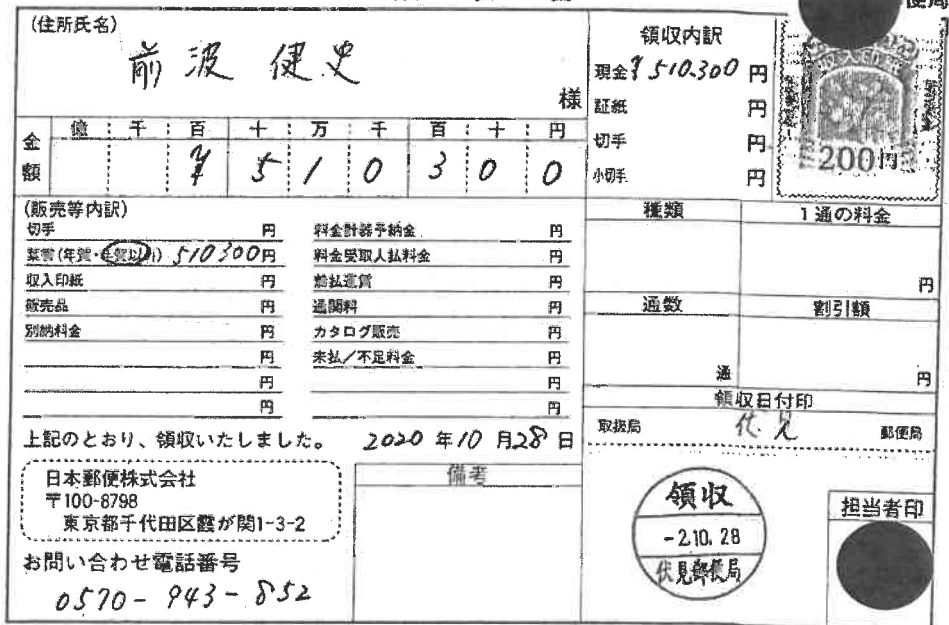 便局
(住所氏名)
前波 健史
様
金額
億 千 百 十 万 千 百 十 円
¥ 5 1 0 3 0 0
領収内訳
現金 ¥510,300 円
証紙 円
切手 円
小切手 円
収入印紙
200円
(販売等内訳)
切手 円
葉書(年賀・年賀以外) 510300円
収入印紙 円
販売品 円
別納料金 円
円
円
円
料金計器予納金 円
料金受取人払料金 円
着払運賃 円
通関料 円
カタログ販売 円
未払/不足料金 円
円
円
種類
1通の料金
円
通数
割引額
通
円
領収日付印
取扱局 伏見 郵便局
上記のとおり、領収いたしました。 2020年10月28日
日本郵便株式会社
〒100-8798
東京都千代田区霞が関1-3-2
お問い合わせ電話番号
0570-943-852
備考
領収
-2.10.28
伏見郵便局
担当者印